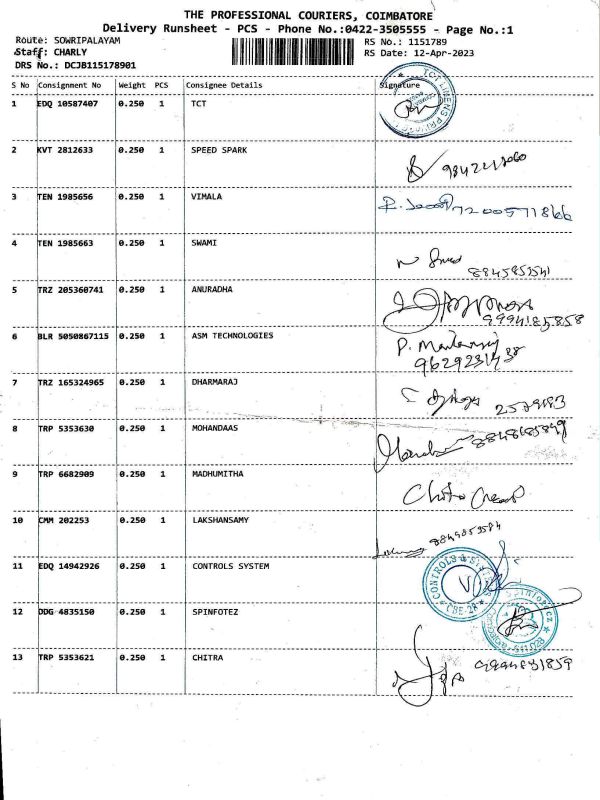 THE PROFESSIONAL COURIERS, COIMBATORE
Delivery Runsheet - PCS - Phone No.:0422-3505555 - Page No.:1
Route: SOWRIPALAYAM RS No.: 1151789
Staff: CHARLY RS Date: 12-Apr-2023
DRS No.: DCJB115178901
S No Consignment No Weight PCS Consignee Details Signature
1 EDQ 10587407 0.250 1 TCT
2 KVT 2812633 0.250 1 SPEED SPARK
3 TEN 1985656 0.250 1 VIMALA 7200571866
4 TEN 1985663 0.250 1 SWAMI
5 TRZ 205360741 0.250 1 ANURADHA
9994185858
6 BLR 5050867115 0.250 1 ASM TECHNOLOGIES P.
7 TRZ 165324965 0.250 1 DHARMARAJ
8 TRP 5353630 0.250 1 MOHANDAAS
9 TRP 6682909 0.250 1 MADHUMITHA
10 CMM 202253 0.250 1 LAKSHANSAMY
11 EDQ 14942926 0.250 1 CONTROLS SYSTEM CONTROLS & CBE-28
12 DDG 4835150 0.250 1 SPINFOTEZ
13 TRP 5353621 0.250 1 CHITRA